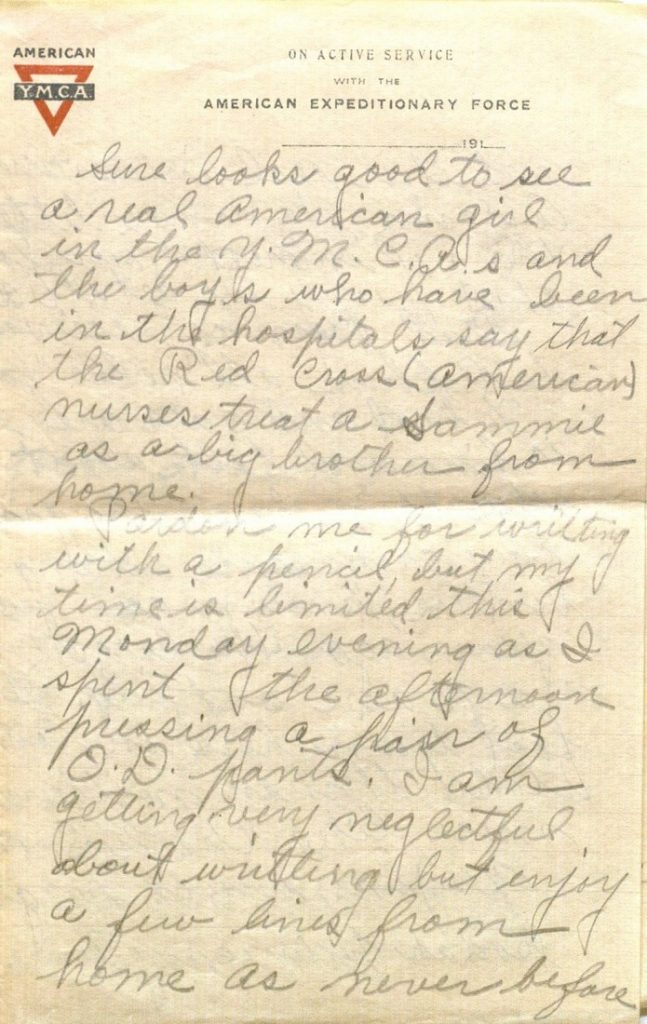 AMERICAN
Y.M.C.A.
ON ACTIVE SERVICE
WITH THE
AMERICAN EXPEDITIONARY FORCE
191
Sure looks good to see
a real American girl
in the Y.M.C.A.s and
the boys who have been
in the hospitals say that
the Red Cross (American)
nurses treat a Sammie
as a big brother from
home.
Pardon me for writting
with a pencil, but my
time is limited this
Monday evening as I
spent the afternoon
pressing a pair of
O.D. pants. I am
getting very neglectful
about writting but enjoy
a few lines from
home as never before